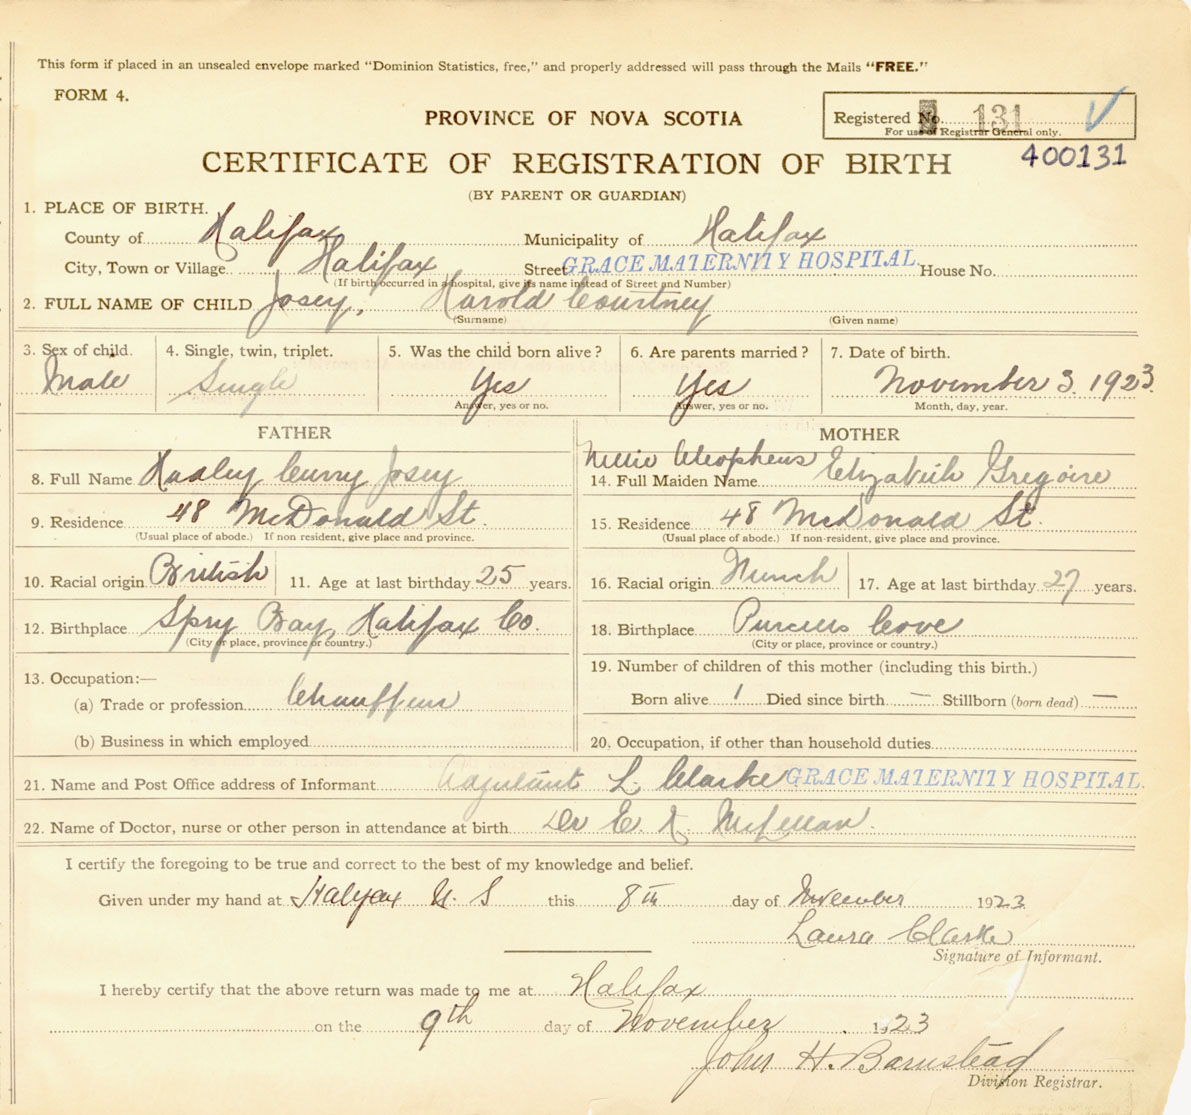 This form if placed in an unsealed envelope marked "Dominion Statistics, free," and properly addressed will pass through the Mails "FREE."
FORM 4.
Registered No. 131
For use of Registrar General only.
PROVINCE OF NOVA SCOTIA
400131
CERTIFICATE OF REGISTRATION OF BIRTH
(BY PARENT OR GUARDIAN)
1. PLACE OF BIRTH.
County of Halifax Municipality of Halifax
City, Town or Village Halifax Street GRACE MATERNITY HOSPITAL House No.
(If birth occurred in a hospital, give its name instead of Street and Number)
2. FULL NAME OF CHILD Josey, Harold Courtney
(Surname) (Given name)
3. Sex of child. 4. Single, twin, triplet. 5. Was the child born alive? 6. Are parents married? 7. Date of birth.
Male Single Yes Yes November 3. 1923
Answer, yes or no. Answer, yes or no. Month, day, year.
FATHER MOTHER
Nellie Cleophens
8. Full Name Curry Josey 14. Full Maiden Name Elizabeth Gregoire
9. Residence 48 McDonald St. 15. Residence 48 McDonald St.
(Usual place of abode.) If non resident, give place and province. (Usual place of abode.) If non-resident, give place and province.
10. Racial origin British 11. Age at last birthday 25 years. 16. Racial origin French 17. Age at last birthday 27 years.
12. Birthplace Spry Bay, Halifax Co. 18. Birthplace Purcells Cove
(City or place, province or country.) (City or place, province or country.)
13. Occupation:— 19. Number of children of this mother (including this birth.)
(a) Trade or profession Chauffeur Born alive 1 Died since birth — Stillborn (born dead) —
(b) Business in which employed 20. Occupation, if other than household duties
21. Name and Post Office address of Informant Adjutant L. Clarke GRACE MATERNITY HOSPITAL.
22. Name of Doctor, nurse or other person in attendance at birth Dr E. K. McLellan.
I certify the foregoing to be true and correct to the best of my knowledge and belief.
Given under my hand at Halifax N. S this 8th day of November 1923
Laura Clarke
Signature of Informant.
I hereby certify that the above return was made to me at Halifax
on the 9th day of November 1923
John H. Barnstead
Division Registrar.